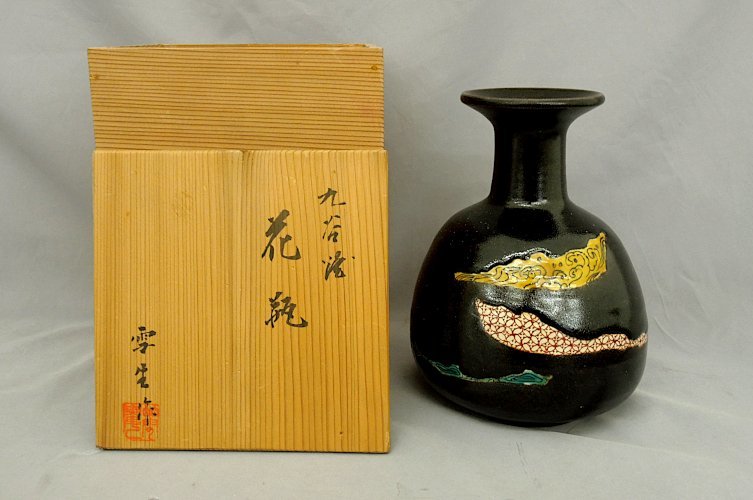 九谷焼
花瓶
雲生作